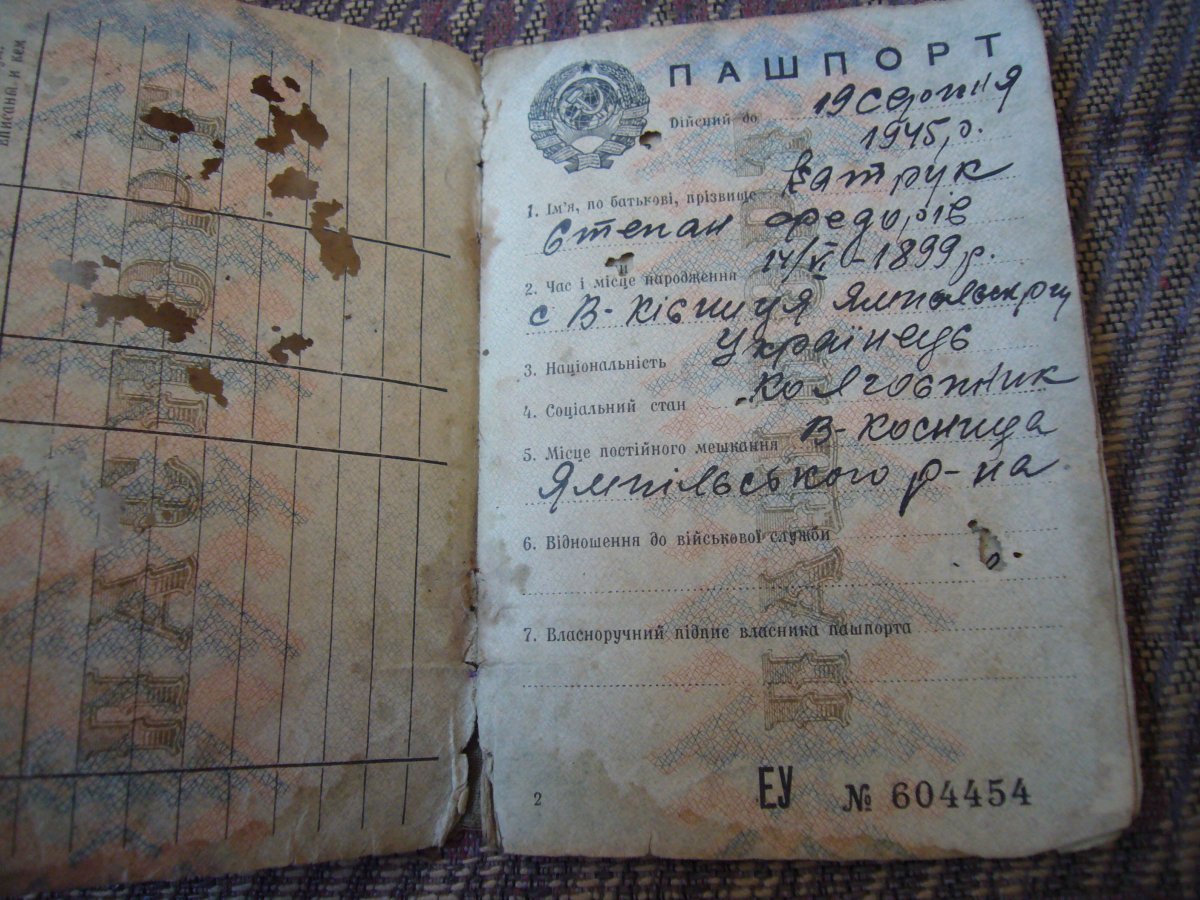 вписана, и кем
ПАШПОРТ
Дійсний до 19 серпня
1945 р.
1. Ім'я, по батькові, прізвище Ватрук
Степан Федорів
2. Час і місце народження 14/VI - 1899 р.
с В-Кісниця Ямпільськогу
3. Національність Українець
4. Соціальний стан колговпник
5. Місце постійного мешкання В-Косница
Ямпільського р-на
6. Відношення до військової служби
7. Власноручний підпис власника пашпорта
2 ЕУ № 604454